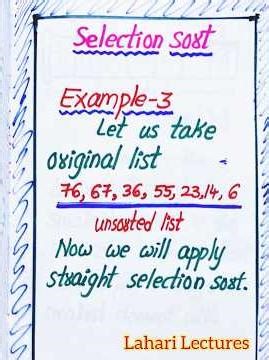 Selection sort
Example-3
Let us take
original list
76, 67, 36, 55, 23, 14, 6
unsorted list
Now we will apply
straight selection sort.
Lahari Lectures